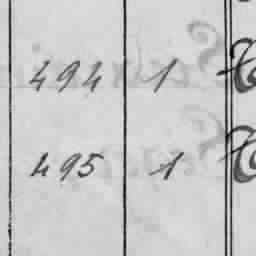 494 1
495 1